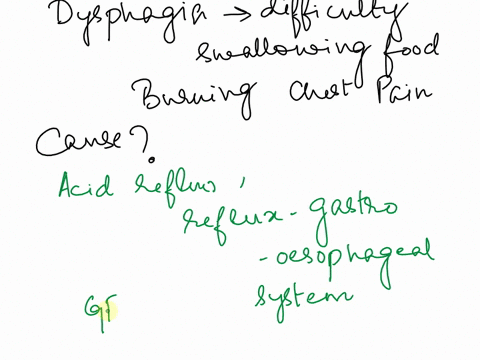 Dysphagia → difficulty
swallowing food
Burning Chest Pain
Cause?
Acid reflux,
reflux - gastro
- oesophageal
system
GE